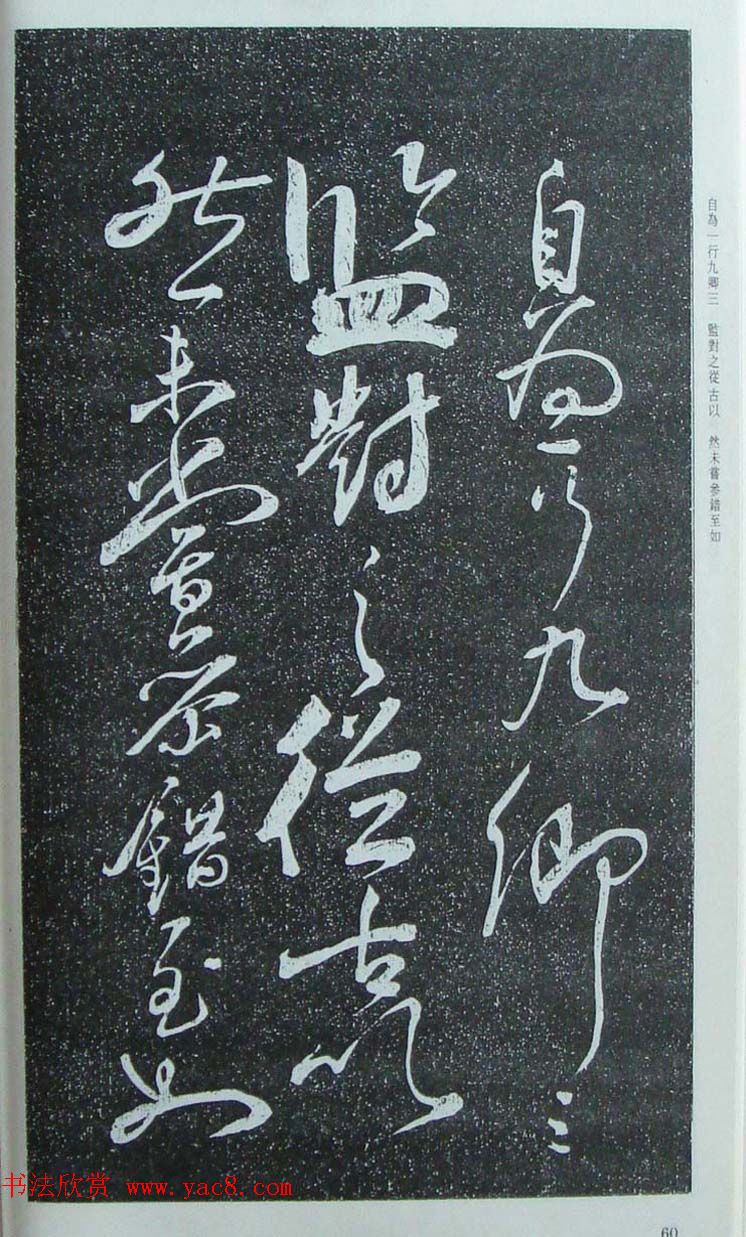 自為一行九卿三
監對之從古以
然未嘗參錯至如
自為一行九卿三　監對之從古以　然未嘗參錯至如
书法欣赏 www.yac8.com
60